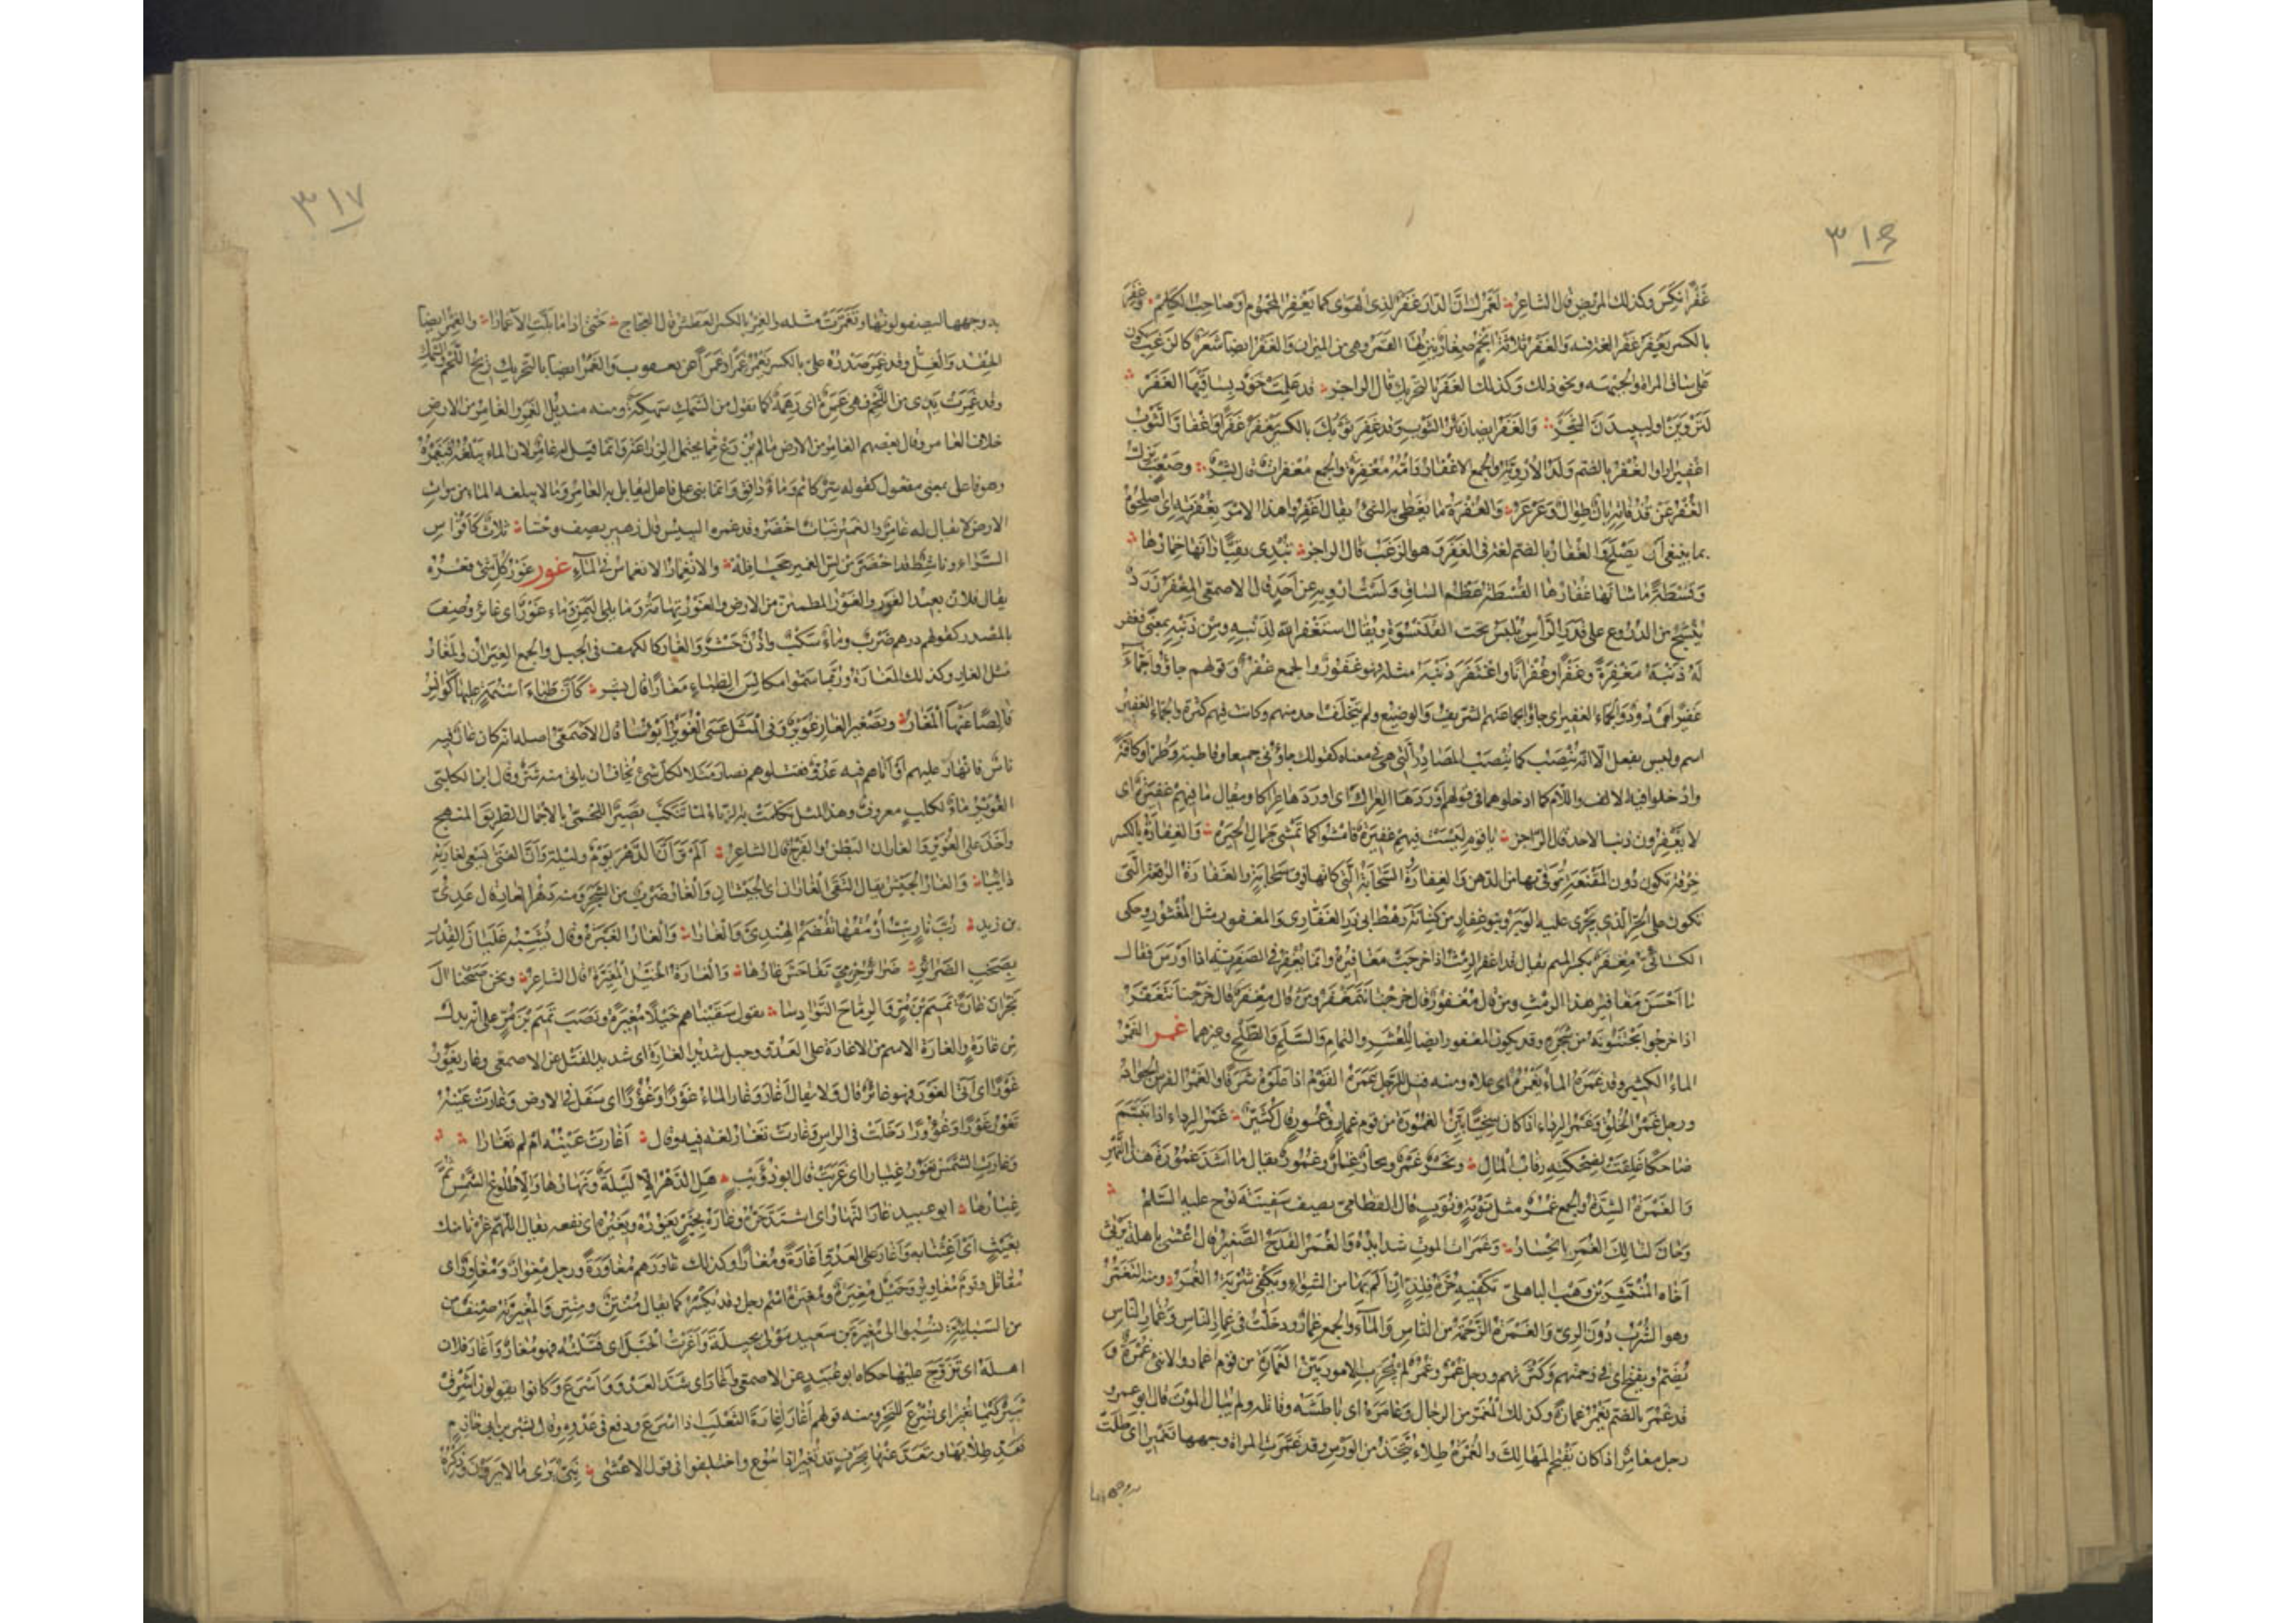 ٣١٦
غَفْرًا نُكِسَ وكذلك المريض قال الشاعر لَعَمْرُكَ انّ الدار غَفْرٌ لذى الهوى كما يَغْفِرُ المحموم او صاحب الكَلْمِ وغَفِرَ
بالكسر يَغْفَرُ غَفَرًا لغة فيه والغَفْرُ ثلاثة انجم صغار ينزلها القمر وهى من الميزان والغَفْرُ ايضا شَعَرٌ كالزغب يكون
على ساق المراة والجبهة ونحو ذلك وكذلك الغَفَرُ بالتحريك قال الراجز قد علمت خَوْدٌ بساقيها الغَفَرْ
لَتَرْوَيَنْ او لَيَبيدَنَّ الشَّجَرْ والغَفَرُ ايضا زئبر الثوب وقد غَفِرَ ثوبك بالكسر يَغْفَرُ غَفَرًا واغفارّ الثوب
اغفيرارا والغُفْرُ بالضم ولد الأروية والجمع الاغفار وأمّه مُغْفِرَةٌ والجمع مغفرات قال بشر وصَعْبٌ يَزِلُّ
الغُفْرُ عن قُذُفاته باناته بان طوال وعرعر والغُفْرَةُ ما يغطى به الشئ يقال اغفروا هذا الامر بغُفْرَتِه اى اصلحوه
بما ينبغى ان يُصْلَح والغُفار بالضم لغة فى الغَفَرِ وهو الزغب قال الراجز تبدى نقيًّا زانها خمارها
وقُسْطَةً ما شانها غُفارها القسطة عظم الساق ولست ارويه عن احد قال الاصمعى المِغْفَرُ زَرَدٌ
يُنْسَجُ من الدروع على قدر الراس يلبس تحت القلنسوة ويقال استغفر الله لذنبه ومن ذنبه بمعنى فغفر
له ذنبه مغفرة وغَفْرًا وغُفْرانًا واغتفر ذنبه مثله فهو غفور والجمع غُفُرٌ وقولهم جاؤا جمّاءً
غفيرًا ممدود والجمّاء الغفير اى جاؤا بجماعتهم الشريف والوضيع ولم يتخلف احد منهم وكانت فيهم كثرة والجماء الغفير
اسم وليس بفعل الا انه يُنْصَب كما يُنْصَب المصادر التى هى فى معناه كقولك جاؤنى جميعا وقاطبة وطرّا وكافة
وادخلوا فيه الالف واللام كما ادخلوهما فى قولهم اوردها العراك اى اوردها عراكا ويقال ما فيهم غفيرة اى
لا يغفرون ذنبا لاحد قال الراجز يا قوم ليست فيهم غفيره فامشوا كما تمشى جمال الحيره والغِفارة بالكسر
خرقة تكون دون المقنعة توقى بها من الدهن والغفارة السحابة التى كانها فوق سحابة والغفارة الرقعة التى
تكون على الحزّ الذى يجرى عليه الوتر وبنو غفار من كنانة رهط ابى ذر الغفارى والمغفور مثل المغثور وحكى
الكسائى مِغْفَرٌ بكسر الميم يقال قد اغفر الرمث اذا خرجت مغافيره وانما يُغْفِر فى الصفرية اذا اورس فقال
ما احسن مغافير هذا الرمث ومن قال مُغْفُورٌ قال خرجنا نتمغفر ومن قال مِغْفَرٌ قال خرجنا نتغفّر
اذا خرجوا يجتنونه من شجره وقد يكون المغفور ايضا للعُشَر والثمام والسلم والطلح وغيرها غمر الغَمْرُ
الماء الكثير وقد غَمَرَهُ الماء يَغْمُرُهُ اى علاه ومنه قيل للرجل غَمَرَهُ القوم اذا علوه شرفا والغَمْرُ الفرس الجواد
ورجل غَمْرُ الخُلُق وغَمْرُ الرداء اذا كان سخيًّا بيّن الغُمُورة من قوم غِمار وغُمُور قال كُثَيِّر غَمْرُ الرداء اذا تبسّم
ضاحكا غلقت لضحكته رقاب المال وبحر غَمْرٌ وبحار غِمار وغُمُور يقال ما اشد غُمُورة هذا النهر
والغَمْرَةُ الشدة والجمع غُمَر مثل نوبة ونوب قال القطامى يصف سفينة نوح عليه السلم
وحان لتالك الغُمَرِ انحسار وغمرات الموت شدائده والغُمَرُ القدح الصغير قال اعشى باهلة يرثى
اخاه المنتشر بن وهب الباهلى تكفيه حُزّة فِلْذٍ ان الم بها من الشواء ويكفى شربه الغُمَر ومنه التغمّر
وهو الشرب دون الرىّ والغَمْرَةُ الزحمة من الناس والماء والجمع غِمار ودخلت فى غُمار الناس وغَمار الناس
يُضَمّ ويفتح اى فى زحمتهم وكثرتهم ورجل غُمْرٌ وغُمُرٌ لم يجرب الامور بيّن الغَمارة من قوم اغمار والانثى غُمْرَة و
قد غَمُرَ بالضم يَغْمُرُ غمارة وكذلك المُغَمَّر من الرجال وغامره اى باطشه وقاتله ولم يبال الموت قال ابو عمرو
رجل مغامر اذا كان يقتحم المهالك والغُمْرَةُ طلاء يتخذ من الورس وقد غمّرت المراة وجهها تغميرا اى طلت
به وجهها
٣١٧
به وجهها ليصفو لونها وتغمّرت مثله والغِمْرُ بالكسر العطش قال العجاج حتى اذا ما بلّت الاغمارا والغِمْرُ ايضا
الحقد والغلّ وقد غَمِرَ صدره علىّ بالكسر يَغْمَرُ غِمْرًا وغَمَرًا عن يعقوب والغَمَرُ ايضا بالتحريك ريح اللحم والسمك
وقد غَمِرَت يدى من اللحم فهى غَمِرَةٌ اى زهمة كما تقول من السمك سَهِكة ومنه منديل الغَمَر والغامر من الارض
خلاف العامر وقال بعضهم الغامر من الارض ما لم يُزْرَع مما يحتمل الزراعة وانما قيل له غامر لان الماء يبلغه فيغمره
وهو فاعل بمعنى مفعول كقوله سرّ كاتم وماء دافق وانما بنى على فاعل ليقابل به العامر وما لا يبلغه الماء من موات
الارض لا يقال له غامر والغمير نبات اخضر وقد غمره اليبيس قال زهير يصف وحشا ثلاث كاقواس
السَّراء وناشط قد اخضرّ من لسّ الغمير جحافله والانغمار الانغماس فى الماء غور غَوْرُ كل شئ قعره
يقال فلان بعيد الغَوْر والغَوْرُ المطمئن من الارض والغَوْرُ تهامة وما يلى اليمن وماء غَوْرٌ اى غائر وصف
بالمصدر كقولهم درهم ضَرْبٌ وماء سَكْبٌ واذن حَشْرٌ والغار كالكهف فى الجبل والجمع الغيران والمغار
مثل الغار وكذلك المغارة وربما سموا مكانس الظباء مغارا قال بشر كأنّ ظباء أسنمة عليها كوانس
قالصا عنها المغار وتصغير الغار غُوَيْر وفى المثل عسى الغُوَيْرُ ابؤسا قال الاصمعى اصله انه كان غار فيه
ناس فانهار عليهم او اتاهم فيه عدوّ فقتلوهم فصار مثلا لكل شئ يخاف ان ياتى منه شر وقال ابن الكلبى
الغُوَيْر ماء لكلب معروف وهذا المثل تكلمت به الزباء لما تنكّب قصير اللخمى بالاجمال الطريق المنهج
واخذ على الغُوَيْر والغاران البطن والفرج قال الشاعر الم تر أنّ الدهر يوم وليلة وأنّ الفتى يسعى لغاريه
دائبا والغار الجيش يقال التقى الغاران اى الجيشان والغار ضرب من الشجر ومنه دهن الغار قال عدىّ
بن زيد رُبّ نار بتّ ارمقها تقضم الهندىّ والغارا والغار الغيرة وقال يشبّه غليان القدر
بصخب الضرائر ضرائر حرمىّ تفاحش غارها والغارة الخيل المغيرة قال الشاعر ونحن صبحنا آل
نجران غارة تميم بن مرّ والرماح النوادسا يقول سقيناهم خيلا مغيرة ونصب تميم بن مرّ على انه بدل
من غارة والغارة الاسم من الاغارة على العدو وحبل شديد الغارة اى شديد الفتل عن الاصمعى وغار يغور
غَوْرًا اى اتى الغَوْر فهو غائر قال ولا يقال اغار وغار الماء غَوْرًا وغُؤُورًا اى سفل فى الارض وغارت عينه
تغور غَوْرًا وغُؤُورًا دخلت فى الراس وغارت تغار لغة فيه وقال اغارت عينه ام لم تغارا
وغارت الشمس تغور غيارا اى غربت قال ابو ذؤيب هل الدهر الا ليلة ونهارها والا طلوع الشمس ثم
غيارها ابو عبيد غار النهار اى اشتد حره وغاره بخير يغوره ويغيره اى نفعه يقال اللهم غرنا منك
بغيث اى اغثنا به واغار على العدو اغارة ومغارا وكذلك غاورهم مغاورة ورجل مغوار ومغاور اى
مقاتل وقوم مغاوير وخيل مغيرة ومغيرة اسم رجل وقد تكسر كما يقال مُنْتِن ومِنْتِن والمغيرية صنف من
من السبائية نسبوا الى مغيرة بن سعيد مولى بجيلة واغرت الحبل اى فتلته فهو مغار واغار فلان
اهله اى تزوج عليها حكاه ابو عبيد عن الاصمعى واغار اى شدّ العدو واسرع وكانوا يقولون اشرق
ثبير كيما نغير اى نسرع للنحر ومنه قولهم اغار اغارة الثعلب اذا اسرع ودفع فى عدوه وقال بشر بن ابى خازم
فعدّ طلابها وتعدّ عنها بحرف قد تُغير اذا تبوع واختلفوا فى قول الاعشى نبىّ يرى ما لا يرون وذكره